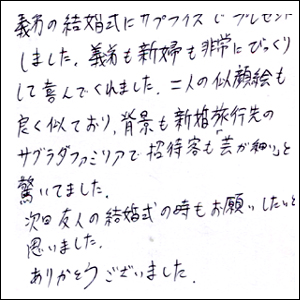 義弟の結婚式にサプライズでプレゼント
しました。義弟も新婦も非常にびっくり
して喜んでくれました。二人の似顔絵も
良く似ており、背景も新婚旅行先の
サグラダファミリアで招待客も「芸が細い」と
驚いてました。
次回友人の結婚式の時もお願いしたいと
思いました。
ありがとうございました。